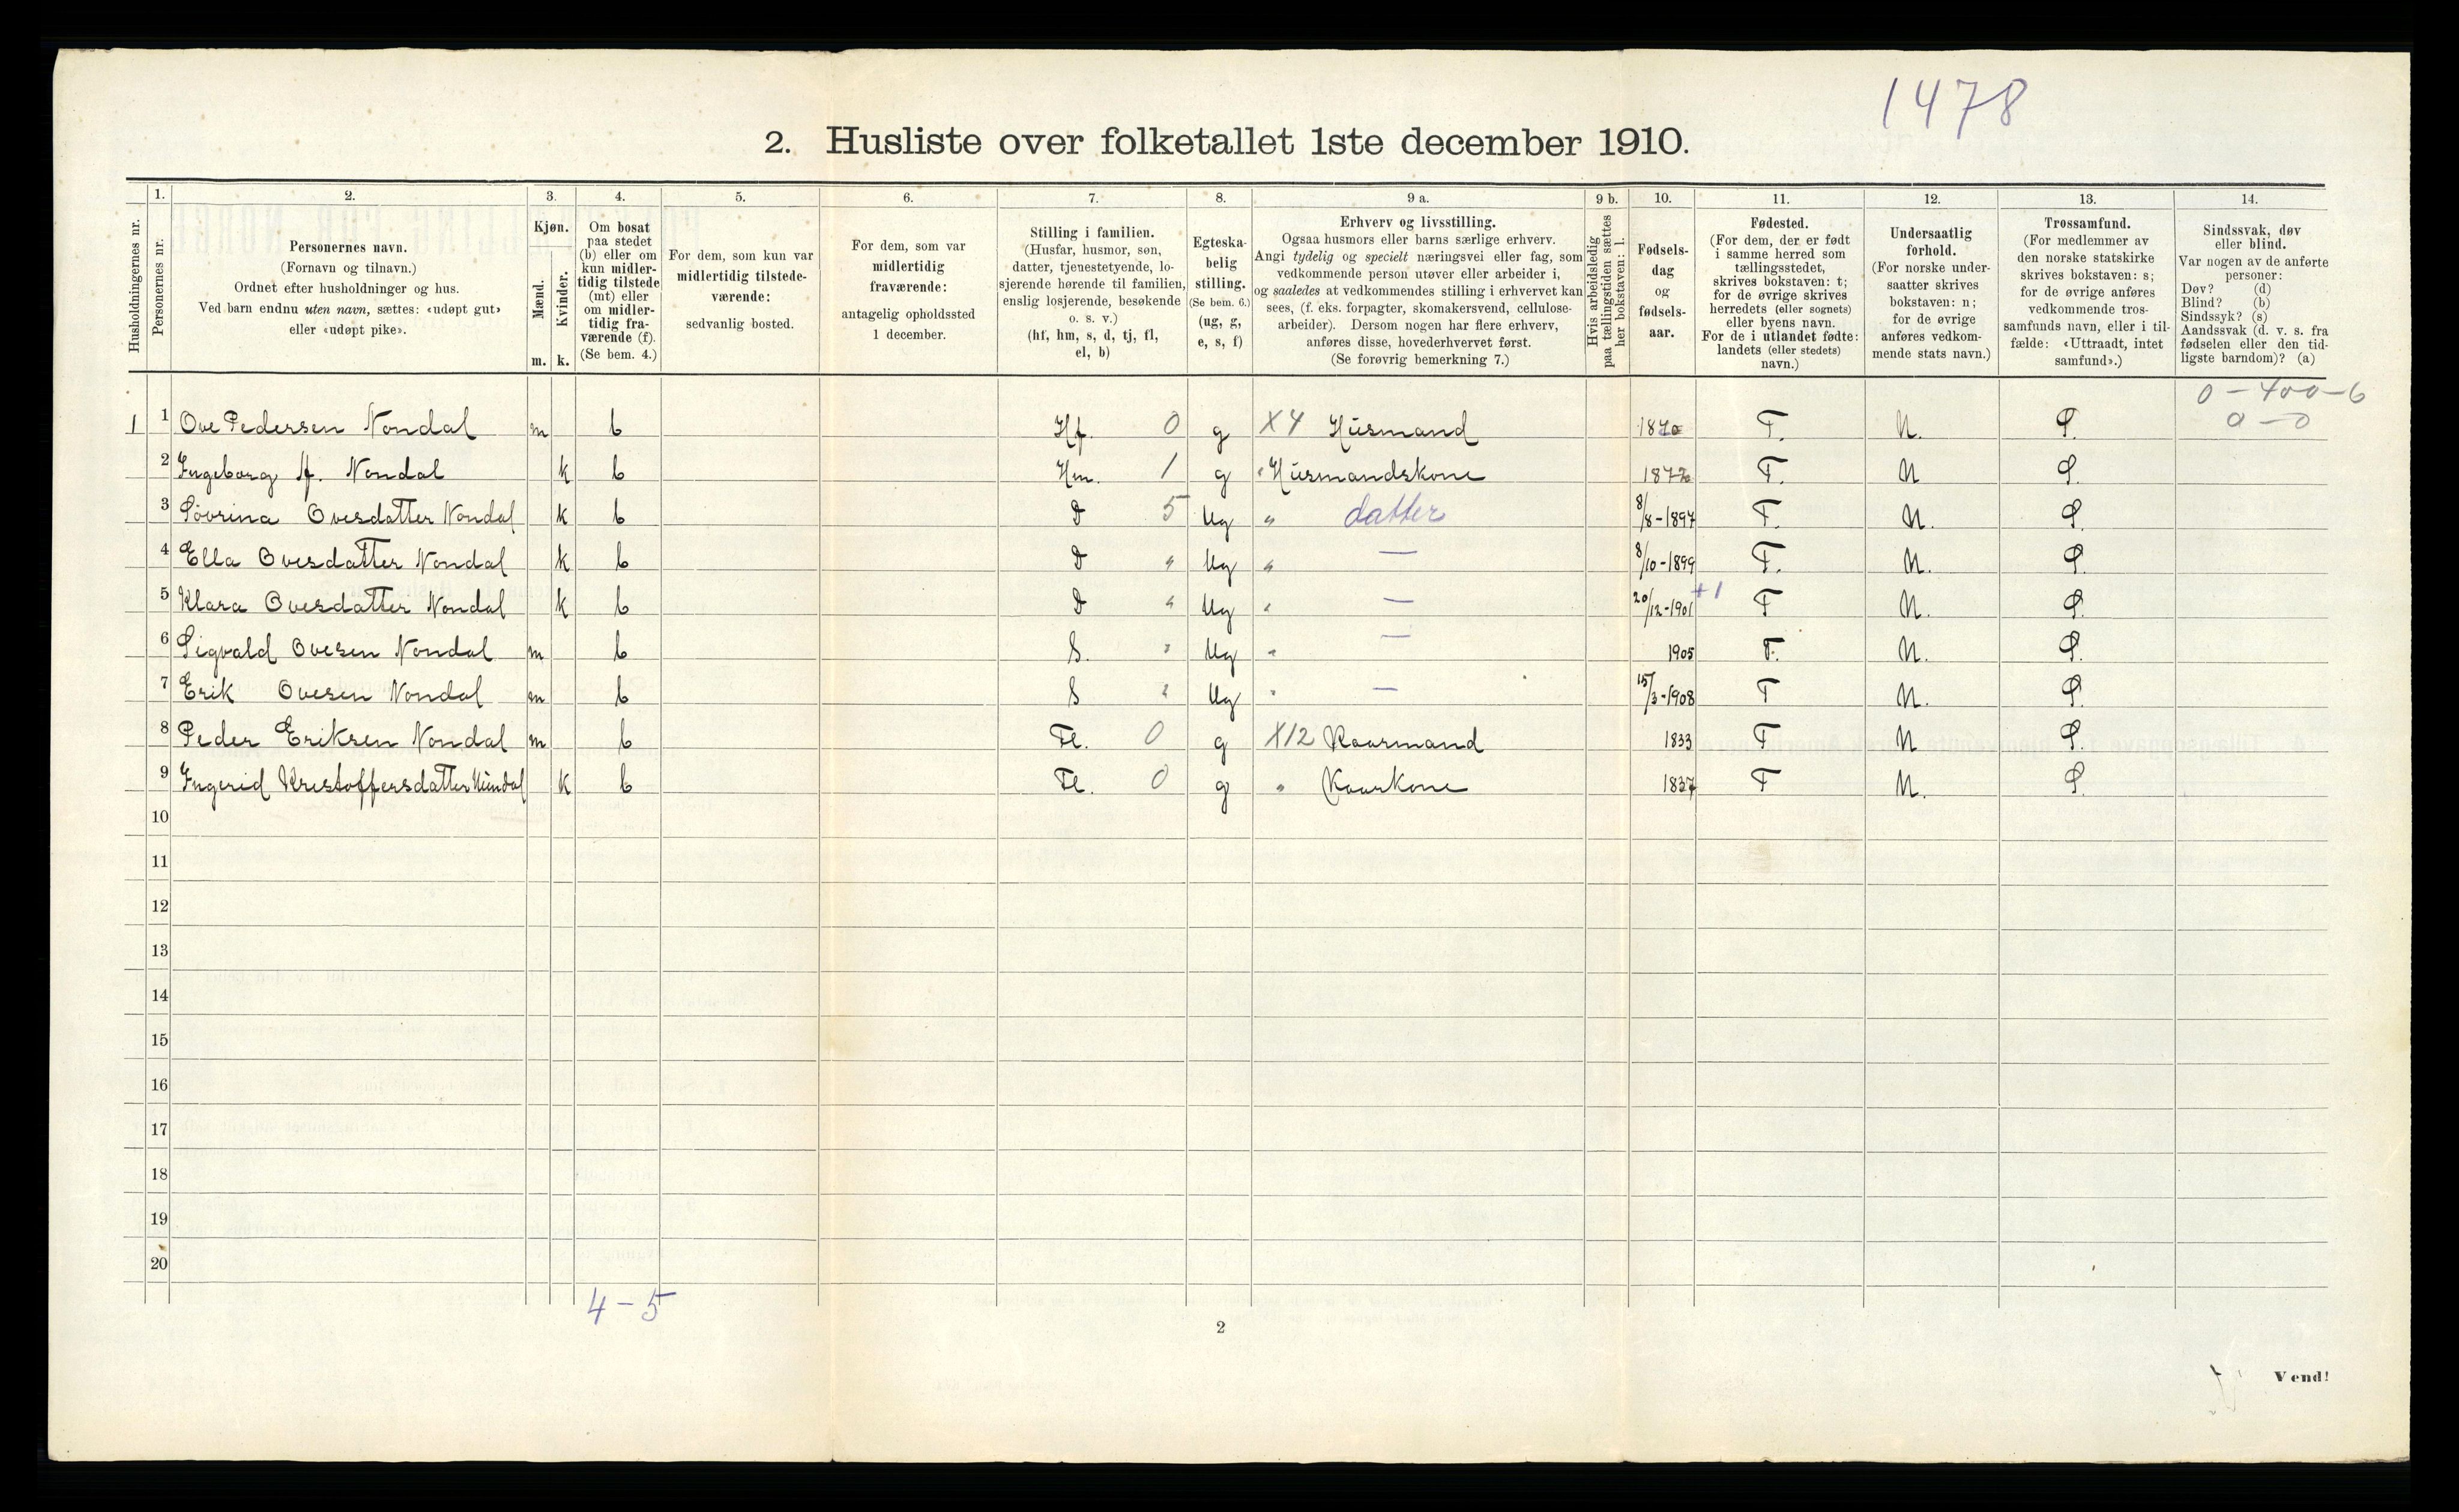 1478
2. Husliste over folketallet 1ste december 1910.
Husholdningernes nr.
1. Personernes nr.
2. Personernes navn.
(Fornavn og tilnavn.)
Ordnet efter husholdninger og hus.
Ved barn endnu uten navn, sættes: «udøpt gut»
eller «udøpt pike».
3. Kjøn.
Mænd. m.
Kvinder. k.
4. Om bosat
paa stedet
(b) eller om
kun midler-
tidig tilstede
(mt) eller
om midler-
tidig fra-
værende (f).
(Se bem. 4.)
5. For dem, som kun var
midlertidig tilstede-
værende:
sedvanlig bosted.
6. For dem, som var
midlertidig
fraværende:
antagelig opholdssted
1 december.
7. Stilling i familien.
(Husfar, husmor, søn,
datter, tjenestetyende, lo-
sjerende hørende til familien,
enslig losjerende, besøkende
o. s. v.)
(hf, hm, s, d, tj, fl,
el, b)
8. Egteska-
belig
stilling.
(Se bem. 6.)
(ug, g,
e, s, f)
9 a. Erhverv og livsstilling.
Ogsaa husmors eller barns særlige erhverv.
Angi tydelig og specielt næringsvei eller fag, som
vedkommende person utøver eller arbeider i,
og saaledes at vedkommendes stilling i erhvervet kan
sees, (f. eks. forpagter, skomakersvend, cellulose-
arbeider). Dersom nogen har flere erhverv,
anføres disse, hovederhvervet først.
(Se forøvrig bemerkning 7.)
9 b. Hvis arbeidsledig
paa tællingstiden sættes
her bokstaven: l.
10. Fødsels-
dag
og
fødsels-
aar.
11. Fødested.
(For dem, der er født
i samme herred som
tællingsstedet,
skrives bokstaven: t;
for de øvrige skrives
herredets (eller sognets)
eller byens navn.
For de i utlandet fødte:
landets (eller stedets)
navn.)
12. Undersaatlig
forhold.
(For norske under-
saatter skrives
bokstaven: n;
for de øvrige
anføres vedkom-
mende stats navn.)
13. Trossamfund.
(For medlemmer av
den norske statskirke
skrives bokstaven: s;
for de øvrige anføres
vedkommende tros-
samfunds navn, eller i til-
fælde: «Uttraadt, intet
samfund».)
14. Sindssvak, døv
eller blind.
Var nogen av de anførte
personer:
Døv? (d)
Blind? (b)
Sindssyk? (s)
Aandssvak (d. v. s. fra
fødselen eller den tid-
ligste barndom)? (a)
0 - 400 - 6
1 1 Ove Pedersen Nondal m b Hf. 0 g X4 Husmand 1870 T. N. S. 0 - 0
2 Ingeborg Nondal k b Hm. 1 g " Husmandskone 1872 T. N S.
3 Sövrina Ovesdatter Nondal k b D 5 Ug " datter 8/8-1897 T. N. S.
4 Ella Ovesdatter Nondal k b D " Ug " — 8/10-1899 T. N. S.
5 Klara Ovesdatter Nondal k b D " Ug " — 20/12-1901 +1 T N. S.
6 Sigvald Ovesen Nondal m b S. " Ug " — 1905 T. N. S.
7 Erik Ovesen Nondal m b S " Ug " — 15/3-1908 T N. S.
8 Peder Eriksen Nondal m b Fl. 0 g X12 Kaarmand 1833 T N S.
9 Ingerid Kristoffersdatter Nundal k b Fl. 0 g " Kaarkone 1837 T N. S.
10
11
12
13
14
15
16
17
18
19
20
4 - 5
2
Vend!